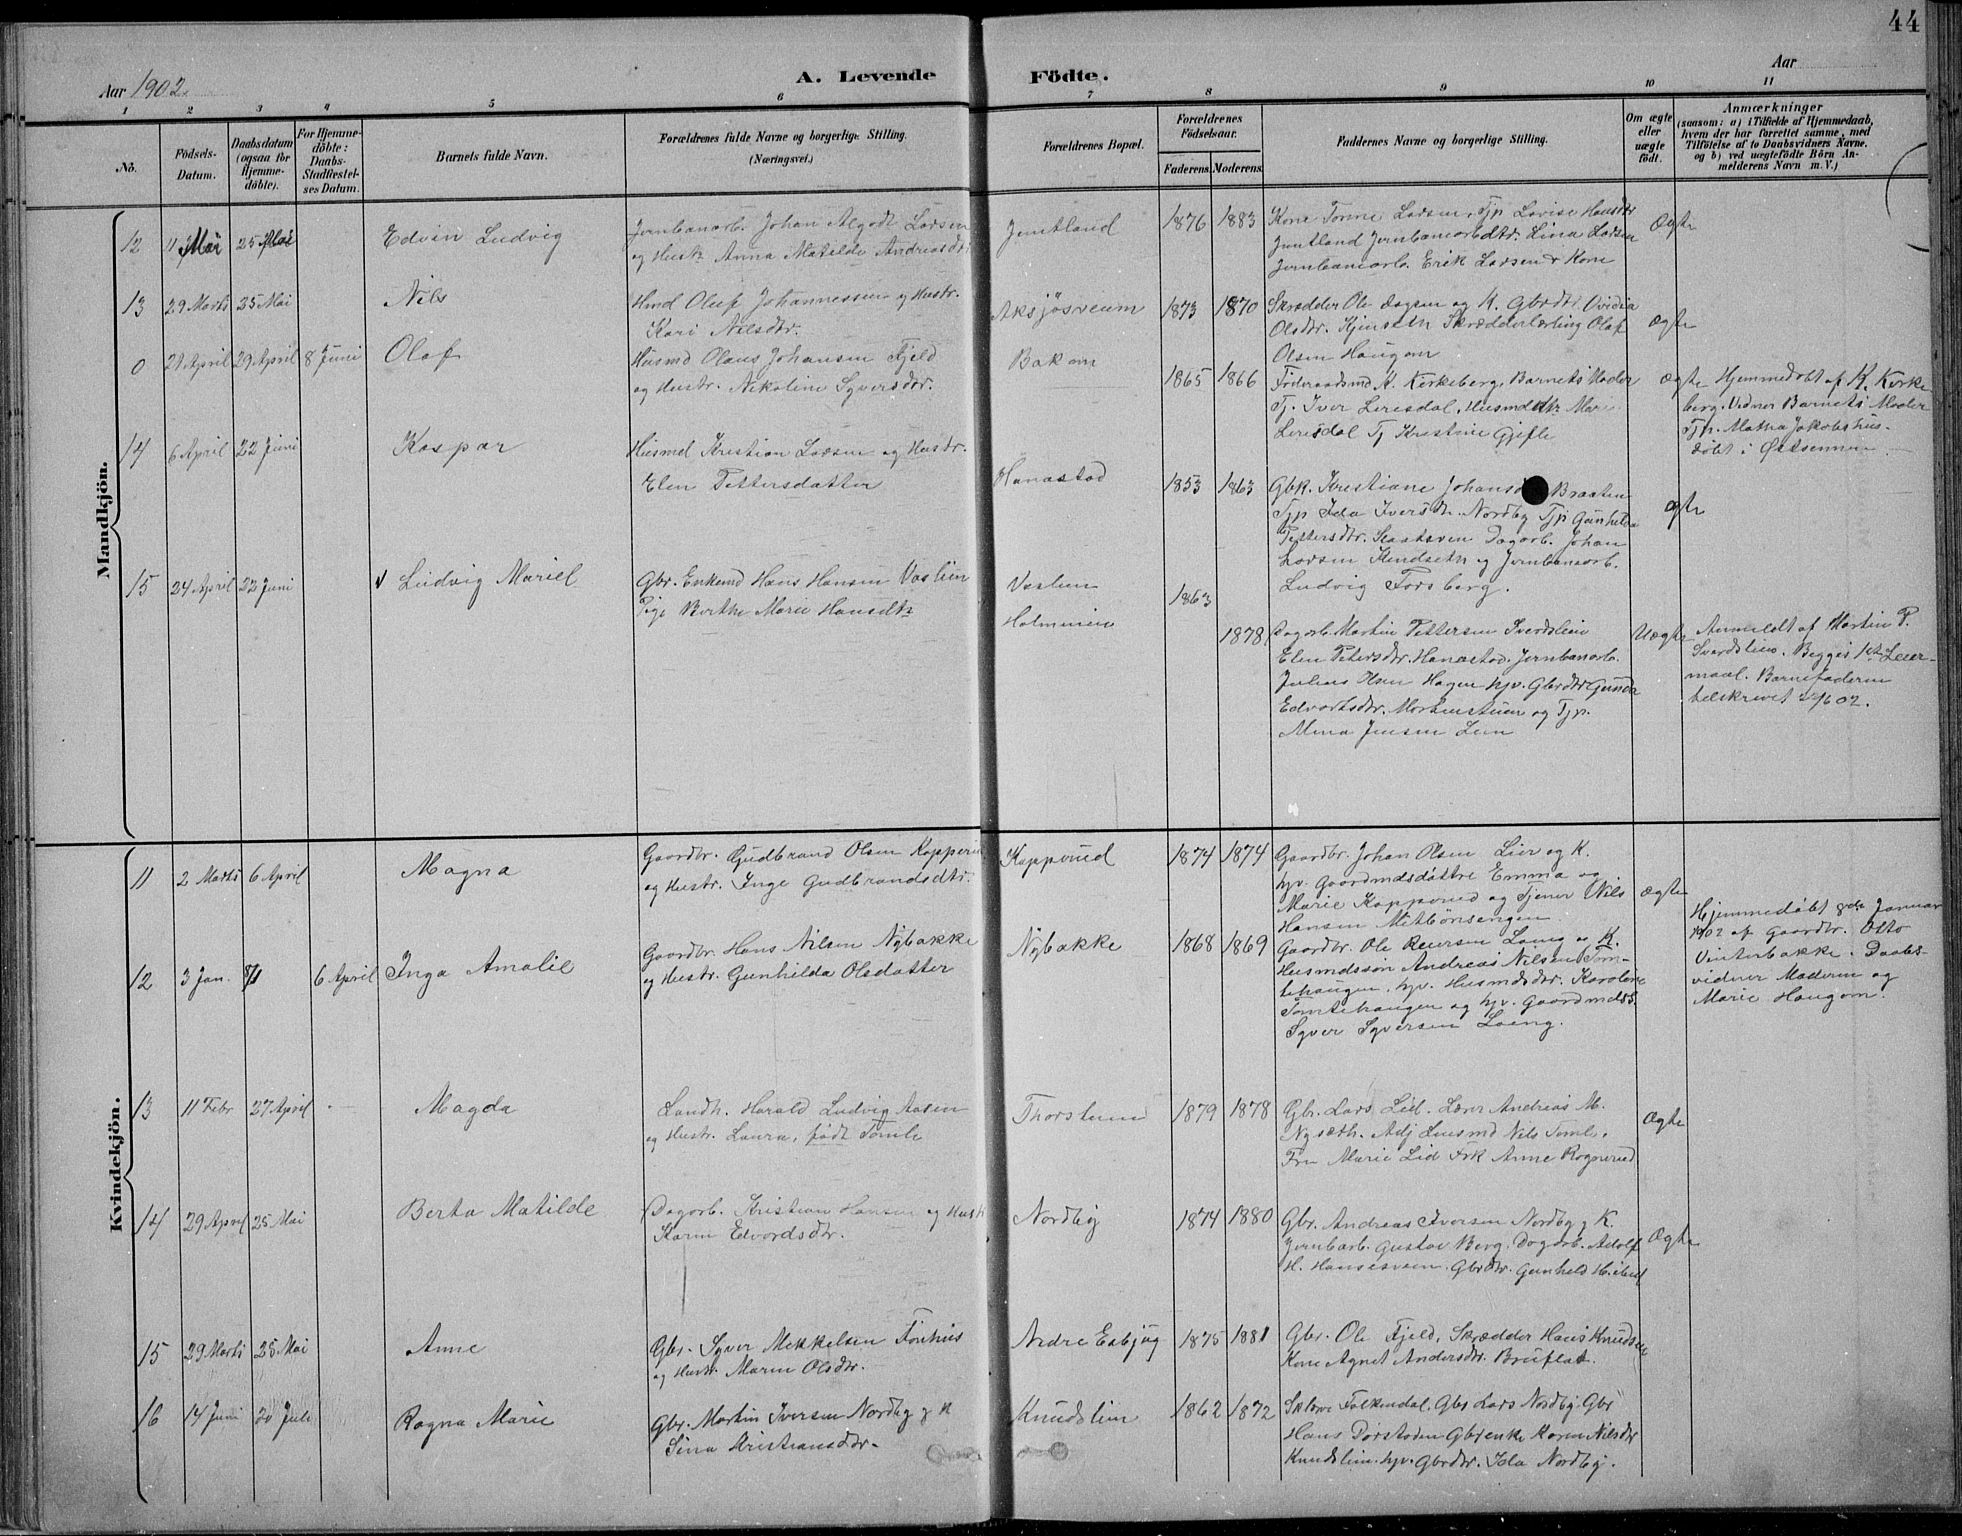 44
Aar 1902.
A. Levende Födte.
Aar
1 2 3 4 5 6 7 8 9 10 11
No.
Födsels-Datum.
Daabsdatum (ogsaa for Hjemme-döbte).
For Hjemme-döbte: Daabs-Stadfæstel-ses Datum.
Barnets fulde Navn.
Forældrenes fulde Navne og borgerlige Stilling. (Næringsvei.)
Forældrenes Bopæl.
Forældrenes Födselsaar.
Faderens. Moderens.
Faddernes Navne og borgerlige Stilling.
Om ægte eller uægte födt.
Anmærkninger
(saasom: a) i Tilfælde af Hjemmedaab, hvem der har forrettet samme, med Tilföielse af to Daabsvidners Navne. og b) ved uægtefödte Börn An-melderens Navn m. V.)
Mandkjön.
12 11 Mai 25 Mai Edvin Ludvig
Jernbanarb. Johan Algodt Larsen
og Hustr. Anna Matilde Andreasdtr.
Jemtland 1876 1883
Kone Tonne Larsen, Tjp Lovise Hansdtr
Jemtland Jernbanearbdtr. Lina Larsen
Jernbanearb. Erik Larsen & Kone
Ægte
13 29 Marts 25 Mai Nils
Hmd Oluf Johannessen og Hustr.
Kari Nilsdtr.
Aksjösveum 1873 1870
Skrædder Ole og K. Gbrdtr. Ovidia
Olsdtr. Skrædderlærling Olaf
Olsen Haugom
Ægte
0 21 April 29 April 8 Juni Olaf
Husmd Olaus Johansen Fjeld
og Hustr. Nikoline Syversdtr.
Bakom 1865 1866
Föderaadsmd K. Kirkeberg, Barnets Moder
Tj. Iver Leresdal, Husmdktr Marie
Leresdal Tj Kristine Gjefle
Ægte
Hjemmedöbt af K. Kirke
berg. Vidner Barnets Moder
Tjp. Mathea Jakobshus-
döbt i Østsennen.
14 6 April 22 Juni Kaspar
Husmd Kristian Larsen og Hustr.
Elen Pettersdatter
Hanastad 1853 1863
Gbk. Kristiane Johansd Braaten
Tjp Ida Iversdtr. Nordby Tjp Gunhilda
Pettersdtr. Dagarb. Johan
Larsen og Jernbanearb.
Ludvig Forsberg.
Ægte
15 24 April 22 Juni Ludvig Mariel
Gbr. Enkemd Hans Hansen Vaslien
Pige Berthe Marie Hansdtr
Vaslien
Holmmien
1863
1878
Dagarb. Martin Pettersen Sverdslien
Elen Petersdtr. Hanastad. Jernbanarb.
Julius Olsen Hagen hjv. Gbrdtr Gunda
Edvartsdtr. Mortenstuen og Tjp.
Mina Jensen Lien
Uægte
Anmeldt af Martin P.
Sverdslien. Begges 1st Leier-
maal. Barnefaderen
tilskrevet 29/6 02.
Kvindekjön.
11 2 Marts 6 April Magna
Gaardbr. Gudbrand Olsen Kopperud
og Hustr. Inge Gudbrandsdtr.
Koppvud 1874 1874
Gaardbr. Johan Olsen Lier og K.
hjv. Gaardmdsdöttre Emma og
Marie Koppvud og Tjener Nils
Hansen Midtbönsengen.
Ægte
12 3 Jan. 8/1 6 April Inga Amalie
Gaardbr. Hans Nilsen Nybakke
og Hustr. Gunhilda Olsdatter
Nybakke 1868 1869
Gaardbr. Ole Reiersen Loeng og K.
Husmdssön Andreas Nilsen Tom-
tehaugen, hjv. Husmdsdtr. Karolene
Tomtehaugen og hjv. Gaardmdss.
Syver Syversen Loeng.
Hjemmedöbt 8de Januar
1902 af Gaardbr. Otto
Vinterbakke. Daabs-
vidner Moderen og
Marie Haugom.
13 11 Febr 27 April Magda
Landh. Harald Ludvig Aasen
og Hustr. Laura, født Tomle
Thorstuen 1879 1878
Gbr. Lars Lid. Lærer Andreas M.
Nyseth. Adj Lensmd Nils Tomle,
Fru Marie Lid Frk Anne Rognerud
Ægte
14 29 April 25 Mai Berta Matilde
Dagarb. Kristian Hansen og Hustr
Karen Edvardsdtr.
Nordby 1874 1880
Gbr. Andreas Iversen Nordby og K.
Jernbarb. Gustav Berg. Dagarb. Adolf
H. Hansesveen. Gbrdtr. Gunhild
Ægte
15 29 Marts 25 Mai Anne
Gbr. Syver Mikkelsen Fonhus
og Hustr. Maren Olsdtr.
Nedre Esbjug 1875 1881
Gbr. Ole Fjeld, Skrædder Hans Knudsen
Kone Agnet Andersdtr. Bruflat.
16 14 Juni 20 Juli Ragna Marie
Gbr. Martin Iversen Nordby og K
Sina Kristiansdtr.
Knudslien 1862 1872
Folkendal, Gbr Lars Nordby. Gbr
Hans Dorstaden Gbrenke Karen Nilsdtr
Knudslien. hjv. Gbrdtr. Ida Nordby.